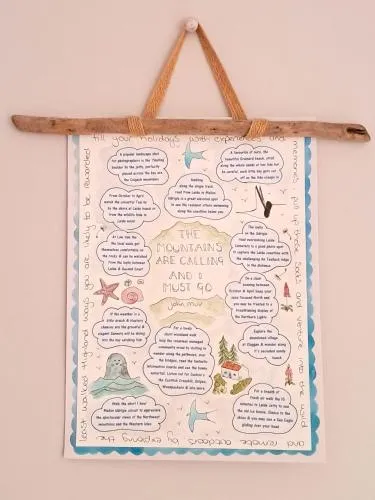 fill your holidays with experiences and
memories, pull up those socks and venture into the wild
and remote outdoors by exploring the
least walked Highland ways you are likely to be rewarded
A popular landscape shot
for photographers is the
boulder by the jetty, perfectly
placed across the bay are
the Coigach mountains
A favourite of ours, the
beautiful Gruinard beach, stroll
along the whole sands at low tide but
be careful, each little bay gets cut
off as the tide creeps in
From October to April
watch the
the shore at Laide beach or
from the wildlife hide in
Laide wood
Walking
along the single track
road from Laide to Mellon
Udrigle is a great elevated spot
to see the resident otters swimming
along the coastline below you
THE
MOUNTAINS
ARE CALLING
AND I
MUST GO
john muir
At Low tide the
the local seals get
themselves comfortable on
the rocks & can be watched
from the layby between
Laide & Second Coast
The
road overlooking Laide
Cemetery is a good photo spot
to capture the Laide coastline with
the challenging An Teallach ridge
in the distance
On a clear
evening between
October & April keep your
eyes focused North and
you may be treated to a
breathtaking display of
the Northern Lights
If the weather is a
little drech & blustery
chances are the graceful &
elegant Gannets will be diving
into the bay catching fish
For a lovely
short woodland walk
help the volunteer managed
community wood by visiting to
wander along the pathways, over
the bridges, read the fantastic
information boards and use the bonny
waterfall. Listen out for Cuckoo's
the Scottish Crossbill, Snipes,
Woodpeckers & lots more
Explore the
abandoned village
at Slaggan & wander along
it's secluded sandy
beach
Walk the short 1 hour
Mellon Udrigle circuit to appreciate
the spectacular views of the Northwest
mountains and the Western Isles
For a breath of
fresh air walk the 10
minutes to Laide Jetty to see
the old Ice House. Chance to the
shine & you may see a Sea Eagle
gliding over your head